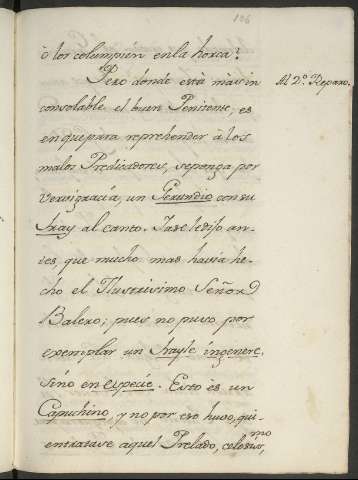 186
ò los columpien en la horca?
Pero donde està màs in
Al 2.º Reparo.
consolable el buen Penitente, es
en que para reprehender à los
malos Predicadores, se ponga por
Vervigracia, un Gerundio con su
Fray al canto. Ya se le dijo an-
tes, que mucho mas havia he-
cho el Ilustrisimo Señor D.
Balero; pues no puso por
exemplar un Frayle in genere,
sino en especie. Esto es un
Capuchino, y no por eso huvo, qui-
en tratase aquel Prelado, celosis,mo